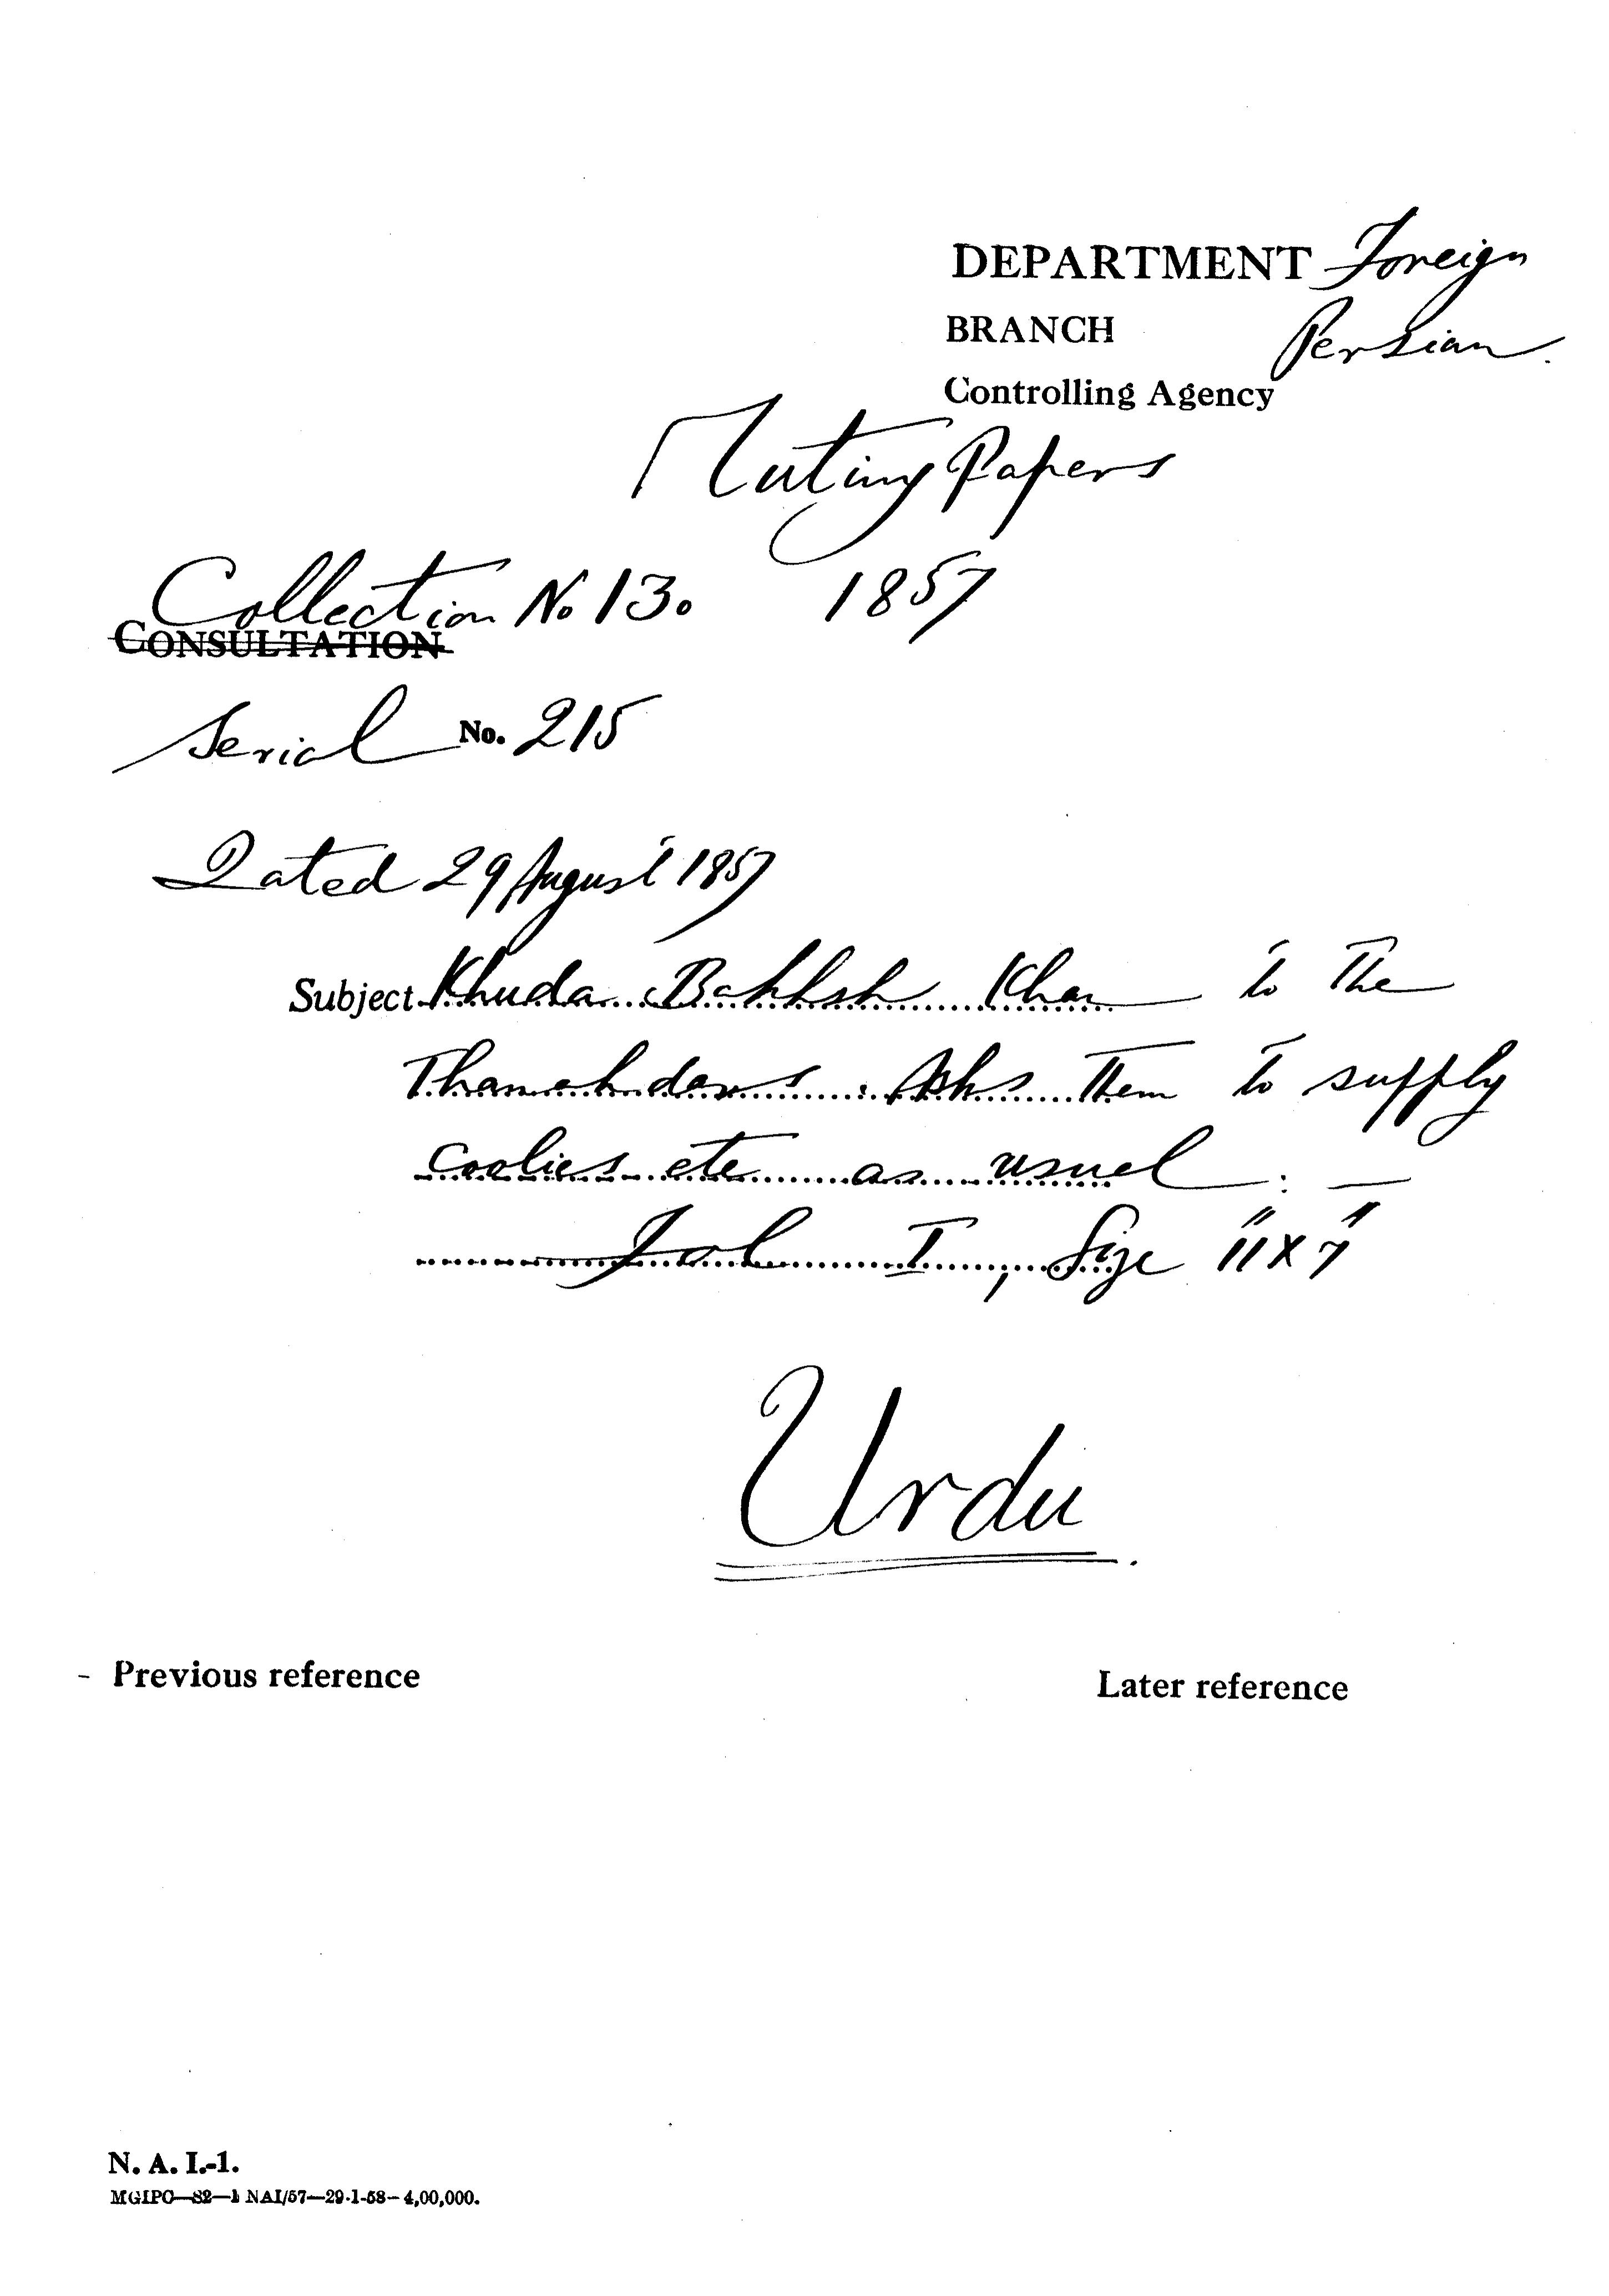 DEPARTMENT Foreign
BRANCH Persian.
Controlling Agency
Mutiny Papers
Collection No 13. 1857
CONSULTATION
Serial No. 215
Dated 29 August 1857
Subject Khuda Bakhsh Khan to the
Thanahdars. Asks them to supply
coolies etc as usual. —
Fol I, Size 11" X 7"
Urdu.
- Previous reference
Later reference
N. A. I.-1.
MGIPC—S2—1 NAI/57—29-1-58—4,00,000.